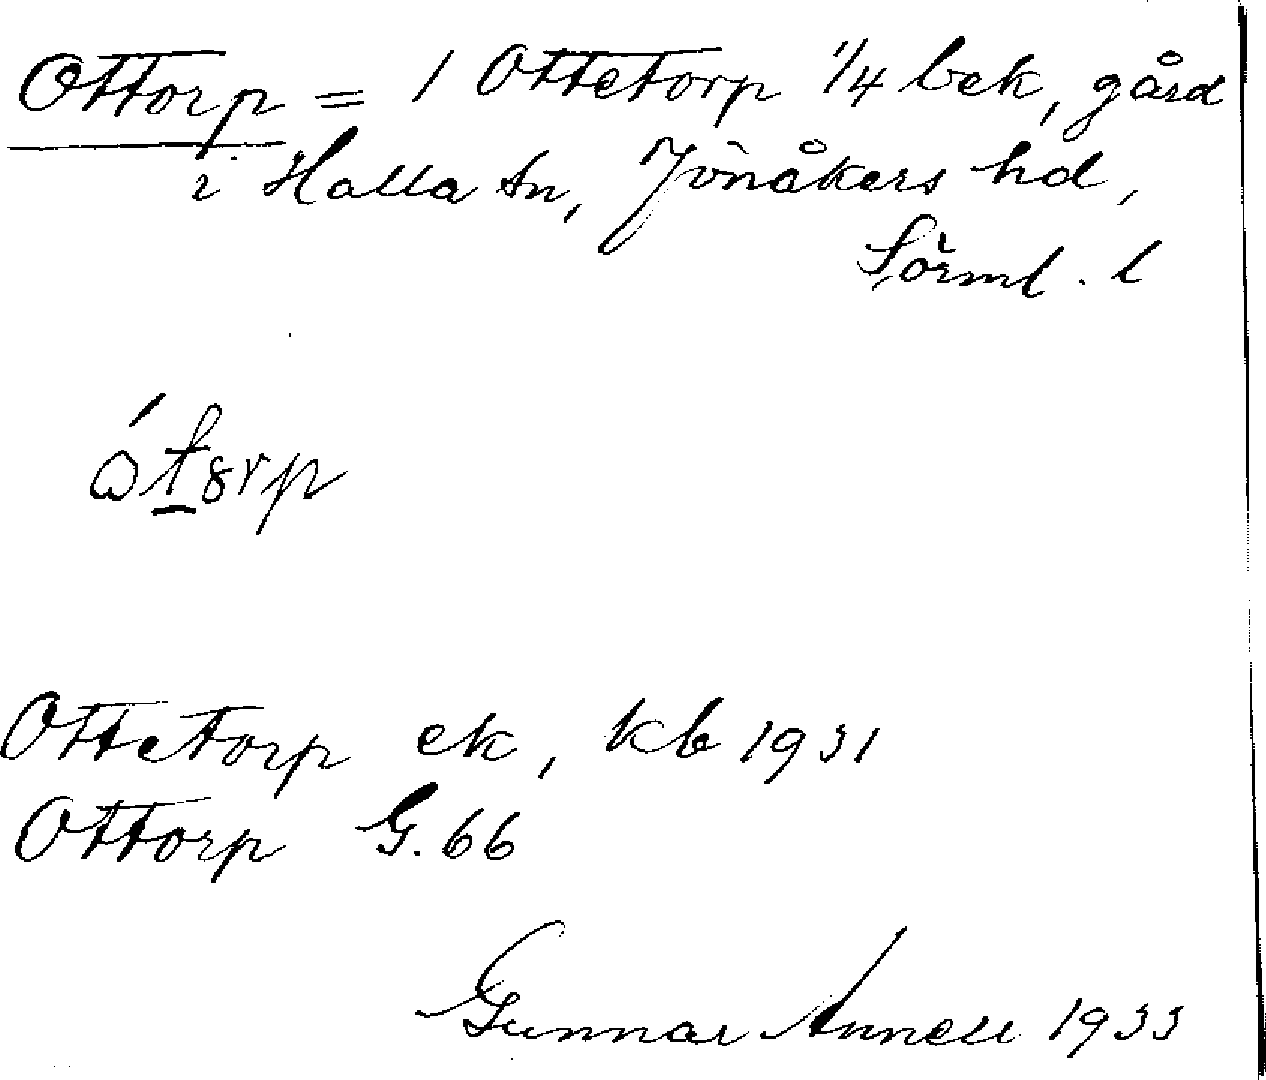 Ottorp = 1 Ottetorp 1/4 bek, gård
i Halla sn, Jönåkers hd,
Sörml. l
Ottetorp ek, kb 1931
Ottorp G. 66
Gunnar Annell 1933